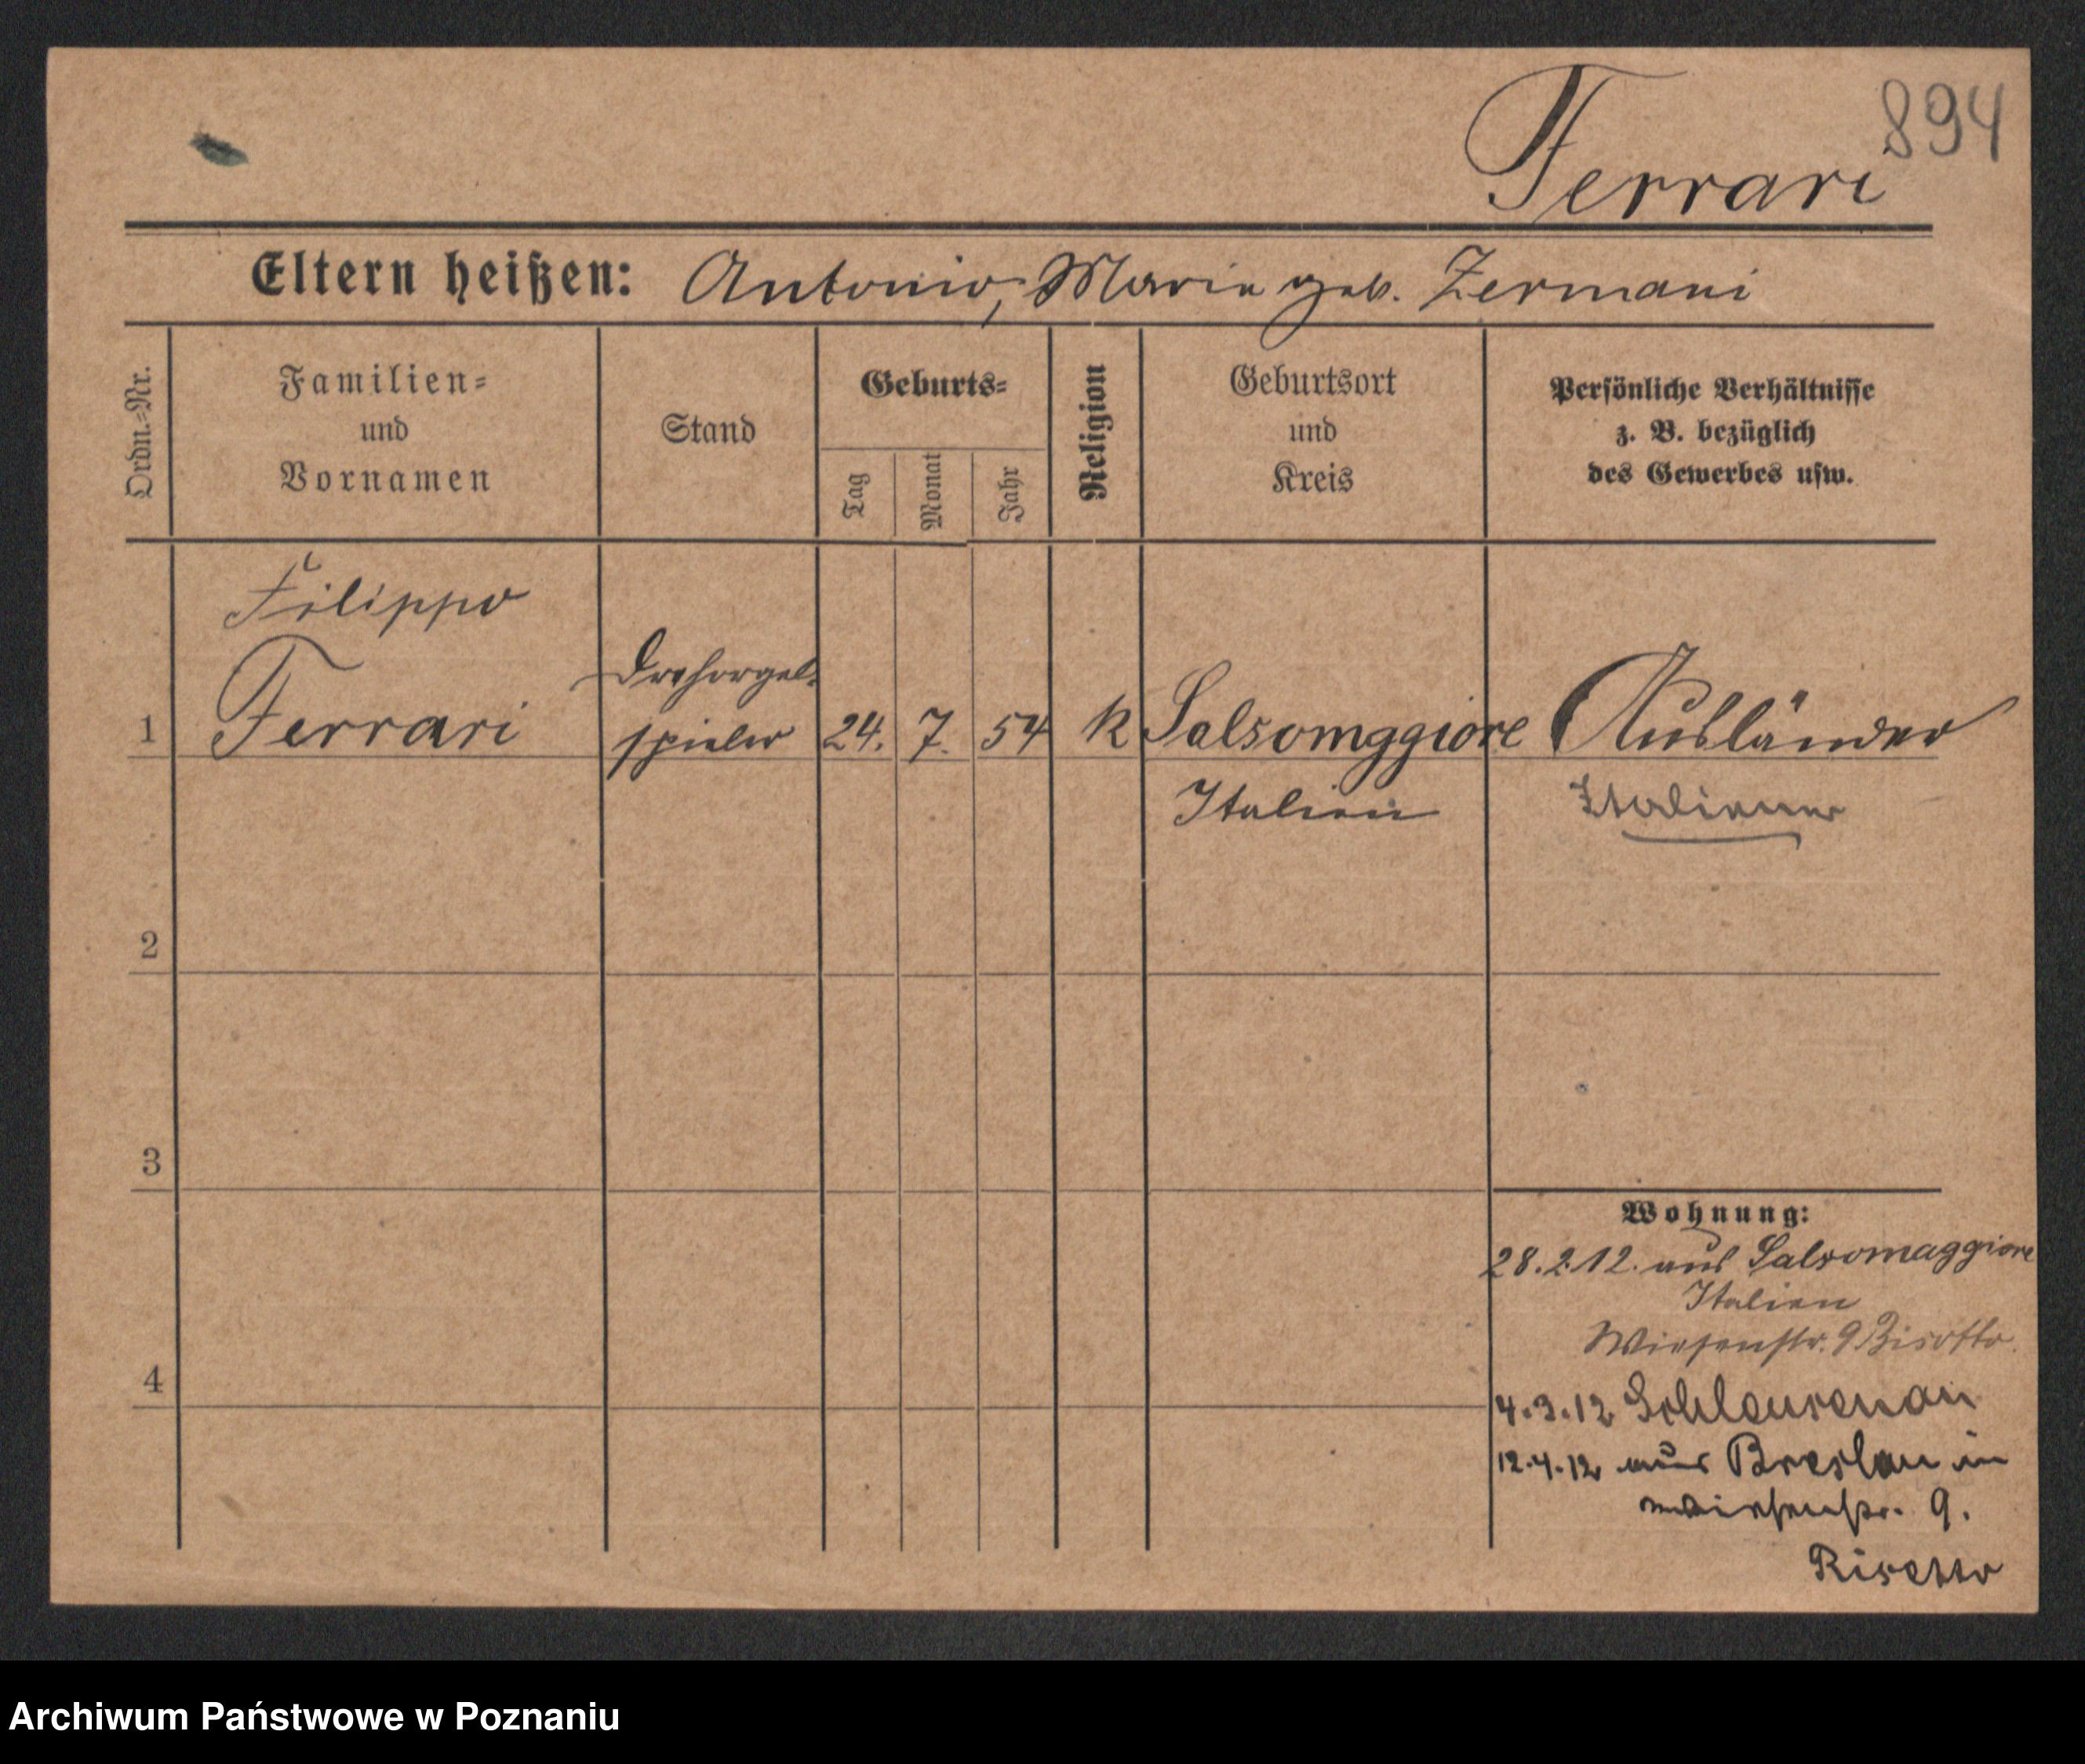 894
Ferrari
Eltern heißen: Antonio, Maria geb. Zermani
Ordn.=Nr.
Familien=
und
Vornamen
Stand
Geburts=
Tag
Monat
Jahr
Religion
Geburtsort
und
Kreis
Persönliche Verhältnisse
z. B. bezüglich
des Gewerbes usw.
Filippo
1 Ferrari
Drehorgel-
spieler
24. 7. 54
k
Salsomggiore
Italien
Ausländer
Italiener
2
3
4
Wohnung:
28.2.12. aus Salsomaggiore
Italien
Wiesenstr. 9
4.3.12
12.4.12 aus Breslau in
Wiesenstr. 9.
Archiwum Państwowe w Poznaniu